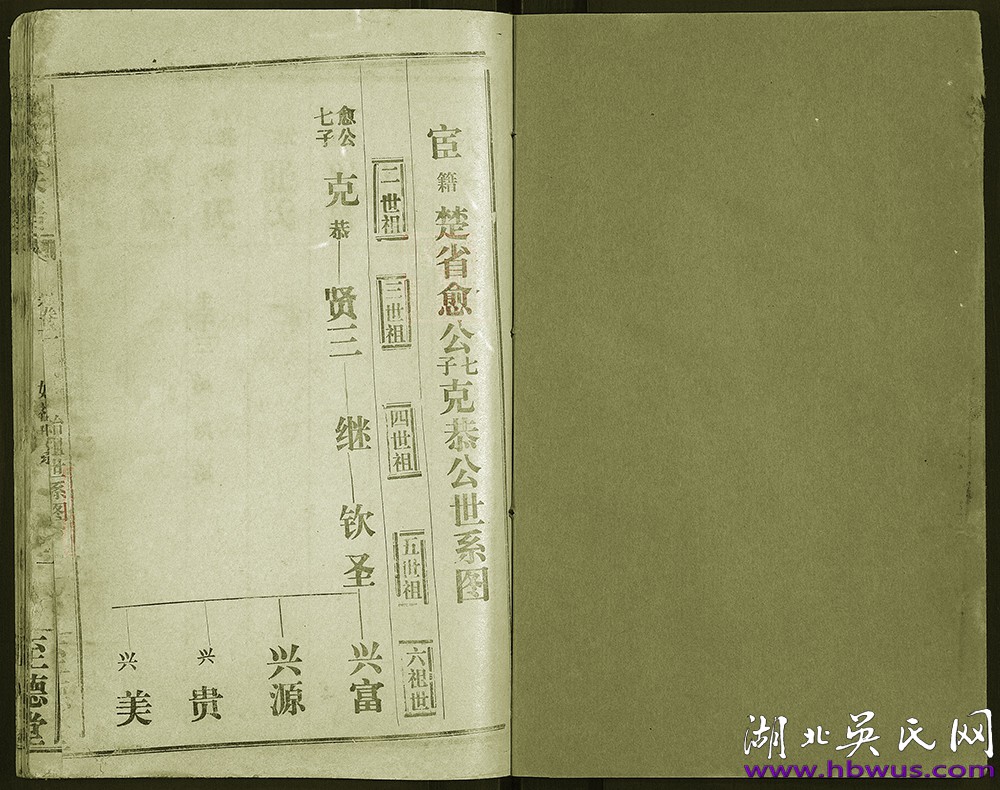 宦籍楚省愈公七子克恭公世系图
二世祖
三世祖
四世祖
五世祖
六祖世
愈公
七子
克恭
贤三
继
钦圣
兴富
兴源
兴贵
兴美
始祖世系图
至德堂
湖北吴氏网
www.hbwus.com